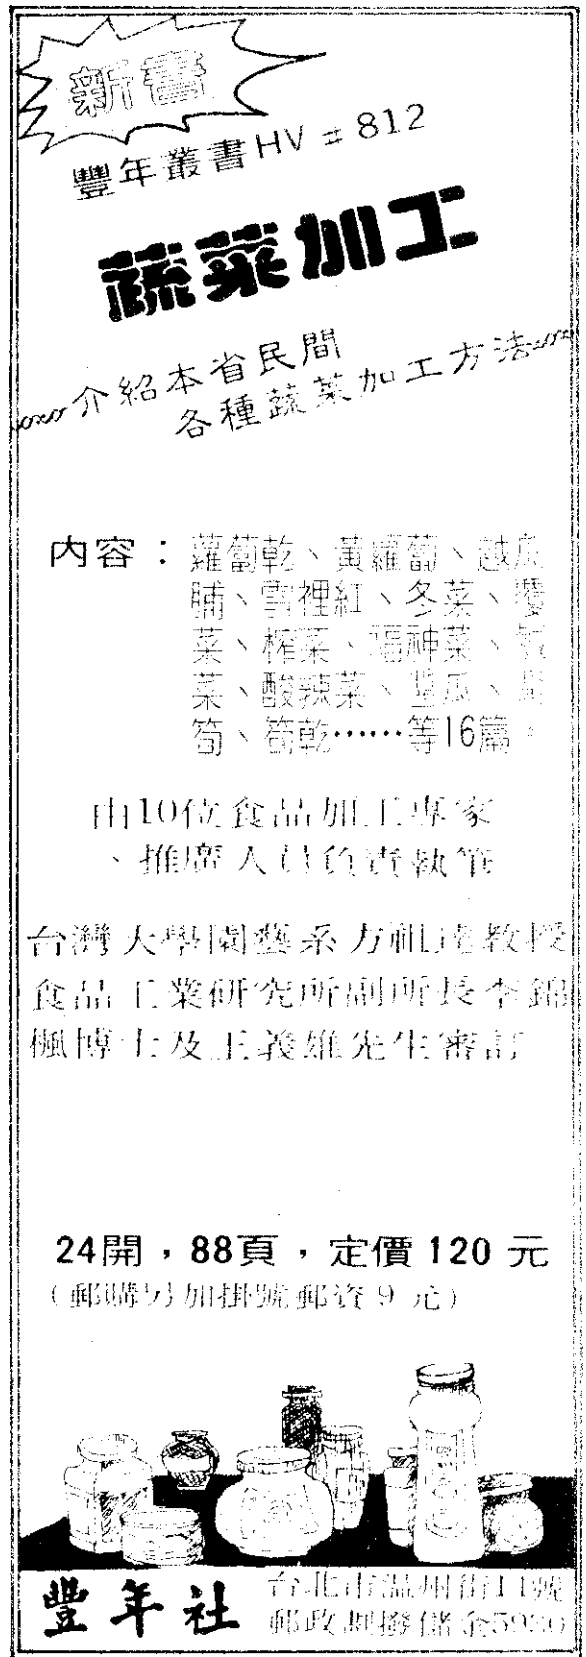 新書
豐年叢書HV±812
蔬菜加工
介紹本省民間
各種蔬菜加工方法
内容：蘿蔔乾、黃蘿蔔、越瓜
脯、雪裡紅、冬菜、覆
菜、榨菜、福神菜、
菜、酸辣菜、瓜、
筍、筍乾……等16篇。
由10位食品加工專家
、推廣人員負責執筆
台灣大學園藝系方祖達教授
食品工業研究所副所長李錦
楓博士及王義雄先生審訂
24開，88頁，定價120元
（郵購另加掛號郵資9元）
豐年社
台北市温州街14號
郵政劃撥儲金5930